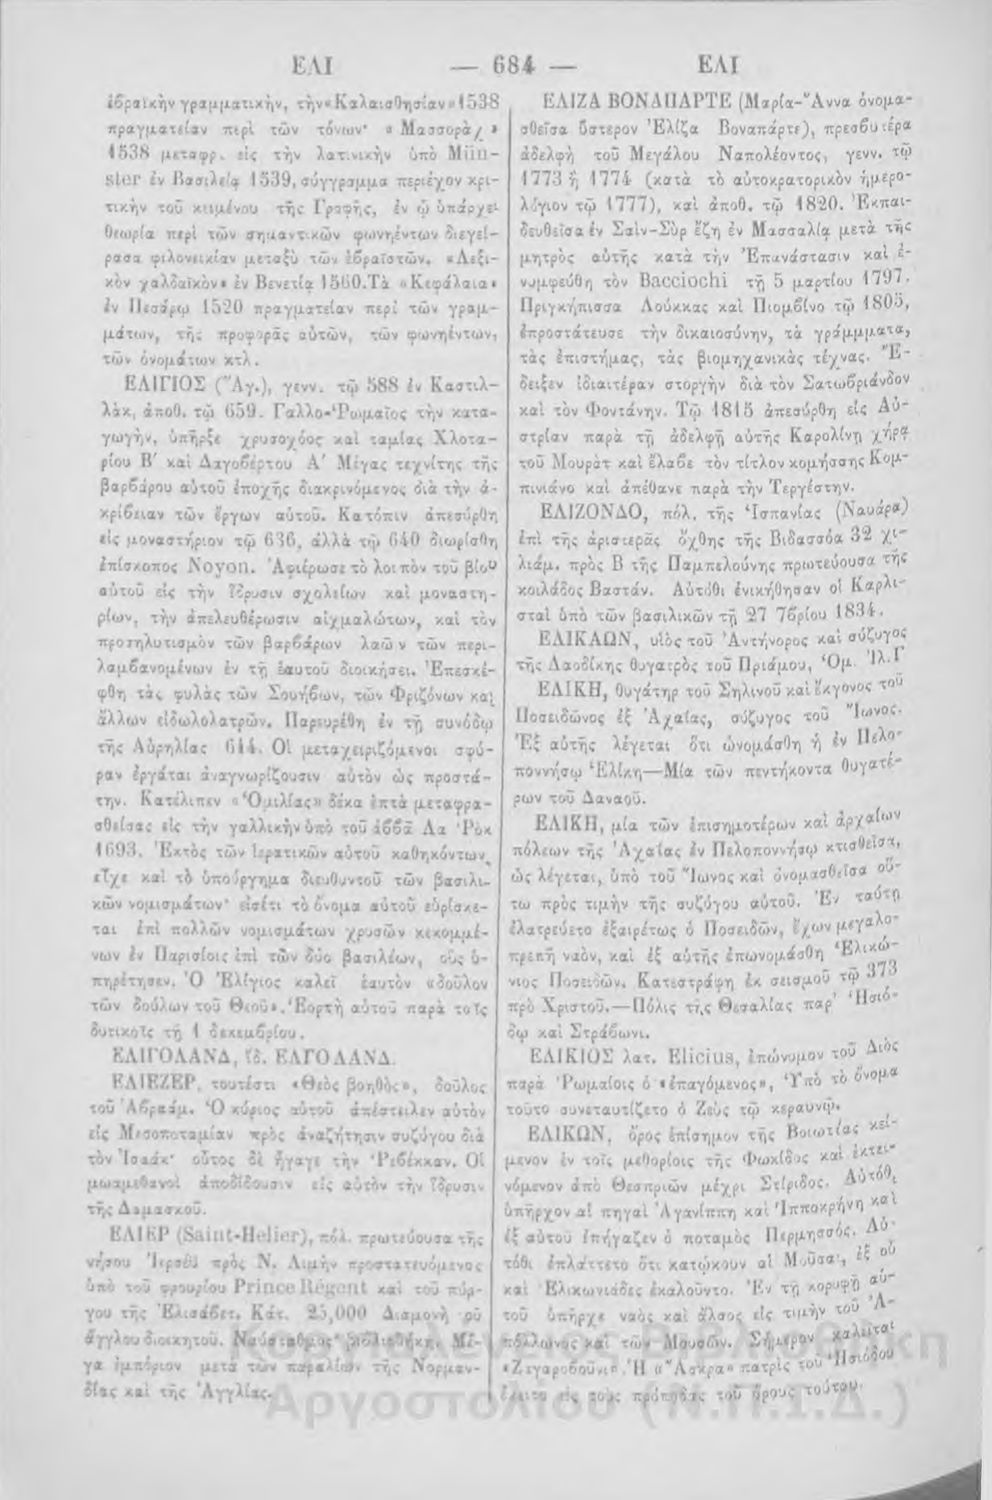 ΕΛΙ — 684 — ΕΛΙ
ἑβραϊκὴν γραμματικὴν, τὴν «Καλαισθησίαν» 1538
πραγματείαν περὶ τῶν τόνων· « Μασσορὰχ »
1538 μεταφρ. εἰς τὴν λατινικὴν ὑπὸ Mün-
ster ἐν Βασιλείᾳ 1539, σύγγραμμα περιέχον κρι-
τικὴν τοῦ κειμένου τῆς Γραφῆς, ἐν ᾧ ὑπάρχει
θεωρία περὶ τῶν σημαντικῶν φωνηέντων διεγεί-
ρασα φιλονεικίαν μεταξὺ τῶν ἑβραϊστῶν. «Λεξι-
κὸν χαλδαϊκὸν» ἐν Βενετίᾳ 1560. Τὰ «Κεφάλαια»
ἐν Πεσάρῳ 1520 πραγματείαν περὶ τῶν γραμ-
μάτων, τῆς προφορᾶς αὐτῶν, τῶν φωνηέντων,
τῶν ὀνομάτων κτλ.
ΕΛΙΓΙΟΣ (Ἅγ.), γενν. τῷ 588 ἐν Καστιλ-
λάκ, ἀποθ. τῷ 659. Γαλλο-Ῥωμαῖος τὴν κατα-
γωγὴν, ὑπῆρξε χρυσοχόος καὶ ταμίας Χλοτα-
ρίου Β′ καὶ Δαγοβέρτου Α′ Μέγας τεχνίτης τῆς
βαρβάρου αὐτοῦ ἐποχῆς διακρινόμενος διὰ τὴν ἀ-
κρίβειαν τῶν ἔργων αὐτοῦ. Κατόπιν ἀπεσύρθη
εἰς μοναστήριον τῷ 636, ἀλλὰ τῷ 640 διωρίσθη
ἐπίσκοπος Noyon. Ἀφιέρωσε τὸ λοιπὸν τοῦ βίου
αὐτοῦ εἰς τὴν ἵδρυσιν σχολείων καὶ μοναστη-
ρίων, τὴν ἀπελευθέρωσιν αἰχμαλώτων, καὶ τὸν
προσηλυτισμὸν τῶν βαρβάρων λαῶν τῶν περι-
λαμβανομένων ἐν τῇ ἑαυτοῦ διοικήσει. Ἐπεσκέ-
φθη τὰς φυλὰς τῶν Σουήβων, τῶν Φριζόνων καὶ
ἄλλων εἰδωλολατρῶν. Παρευρέθη ἐν τῇ συνόδῳ
τῆς Αὐρηλίας 644. Οἱ μεταχειριζόμενοι σφύ-
ραν ἐργάται ἀναγνωρίζουσιν αὐτὸν ὡς προστά-
την. Κατέλιπεν «Ὁμιλίας» δέκα ἑπτὰ μεταφρα-
σθείσας εἰς τὴν γαλλικὴν ὑπὸ τοῦ ἀββᾶ Λα Ῥὸκ
1693. Ἐκτὸς τῶν ἱερατικῶν αὐτοῦ καθηκόντων,
εἶχε καὶ τὸ ὑπούργημα διευθυντοῦ τῶν βασιλι-
κῶν νομισμάτων· εἰσέτι τὸ ὄνομα αὐτοῦ εὑρίσκε-
ται ἐπὶ πολλῶν νομισμάτων χρυσῶν κεκομμέ-
νων ἐν Παρισίοις ἐπὶ τῶν δύο βασιλέων, οὓς ὑ-
πηρέτησεν. Ὁ Ἐλίγιος καλεῖ ἑαυτὸν «δοῦλον
τῶν δούλων τοῦ Θεοῦ». Ἑορτὴ αὐτοῦ παρὰ τοῖς
δυτικοῖς τῇ 1 δεκεμβρίου.
ΕΛΙΓΟΛΑΝΔ, ἴδ. ΕΛΓΟΛΑΝΔ.
ΕΛΙΕΖΕΡ, τουτέστι «Θεὸς βοηθὸς», δοῦλος
τοῦ Ἀβραάμ. Ὁ κύριος αὐτοῦ ἀπέστειλεν αὐτὸν
εἰς Μεσοποταμίαν πρὸς ἀναζήτησιν συζύγου διὰ
τὸν Ἰσαάκ· οὗτος δὲ ἤγαγε τὴν Ῥεβέκκαν. Οἱ
μωαμεθανοὶ ἀποδίδουσιν εἰς αὐτὸν τὴν ἵδρυσιν
τῆς Δαμασκοῦ.
ΕΛΙΕΡ (Saint-Helier), πόλ. πρωτεύουσα τῆς
νήσου Ἰερσέϋ πρὸς Ν. Λιμὴν προστατευόμενος
ὑπὸ τοῦ φρουρίου Prince Régent καὶ τοῦ πύρ-
γου τῆς Ἐλισάβετ. Κάτ. 25,000 Διαμονὴ τοῦ
ἄγγλου διοικητοῦ. Ναύσταθμος· βιβλιοθήκη. Μέ-
γα ἐμπόριον μετὰ τῶν παραλίων τῆς Νορμαν-
δίας καὶ τῆς Ἀγγλίας.
ΕΛΙΖΑ ΒΟΝΑΠΑΡΤΕ (Μαρία-Ἄννα ὀνομα-
σθεῖσα ὕστερον Ἐλίζα Βοναπάρτε), πρεσβυτέρα
ἀδελφὴ τοῦ Μεγάλου Ναπολέοντος, γενν. τῷ
1773 ἢ 1774 (κατὰ τὸ αὐτοκρατορικὸν ἡμερο-
λόγιον τῷ 1777), καὶ ἀποθ. τῷ 1820. Ἐκπαι-
δευθεῖσα ἐν Σαὶν-Σὺρ ἔζη ἐν Μασσαλίᾳ μετὰ τῆς
μητρὸς αὐτῆς κατὰ τὴν Ἐπανάστασιν καὶ ἐ-
νυμφεύθη τὸν Bacciochi τῇ 5 μαρτίου 1797.
Πριγκήπισσα Λούκκας καὶ Πιομβίνο τῷ 1805,
ἐπροστάτευσε τὴν δικαιοσύνην, τὰ γράμμματα,
τὰς ἐπιστήμας, τὰς βιομηχανικὰς τέχνας. Ἔ-
δειξεν ἰδιαιτέραν στοργὴν διὰ τὸν Σατωβριάνδον
καὶ τὸν Φοντάνην. Τῷ 1815 ἀπεσύρθη εἰς Αὐ-
στρίαν παρὰ τῇ ἀδελφῇ αὐτῆς Καρολίνῃ χήρᾳ
τοῦ Μουρὰτ καὶ ἔλαβε τὸν τίτλον κομήσσης Κομ-
πινιάνο καὶ ἀπέθανε παρὰ τὴν Τεργέστην.
ΕΛΙΖΟΝΔΟ, πόλ. τῆς Ἱσπανίας (Ναυάρα)
ἐπὶ τῆς ἀριστερᾶς ὄχθης τῆς Βιδασσόα 32 χι-
λιάμ. πρὸς Β τῆς Παμπελούνης πρωτεύουσα τῆς
κοιλάδος Βαστάν. Αὐτόθι ἐνικήθησαν οἱ Καρλι-
σταὶ ὑπὸ τῶν βασιλικῶν τῇ 27 7βρίου 1834.
ΕΛΙΚΑΩΝ, υἱὸς τοῦ Ἀντήνορος καὶ σύζυγος
τῆς Λαοδίκης θυγατρὸς τοῦ Πριάμου, Ὁμ. Ἰλ. Γ
ΕΛΙΚΗ, θυγάτηρ τοῦ Σηλινοῦ καὶ ἔκγονος τοῦ
Ποσειδῶνος ἐξ Ἀχαΐας, σύζυγος τοῦ Ἴωνος.
Ἐξ αὐτῆς λέγεται ὅτι ὠνομάσθη ἡ ἐν Πελο-
ποννήσῳ Ἑλίκη—Μία τῶν πεντήκοντα θυγατέ-
ρων τοῦ Δαναοῦ.
ΕΛΙΚΗ, μία τῶν ἐπισημοτέρων καὶ ἀρχαίων
πόλεων τῆς Ἀχαΐας ἐν Πελοποννήσῳ κτισθεῖσα,
ὡς λέγεται, ὑπὸ τοῦ Ἴωνος καὶ ὀνομασθεῖσα οὕ-
τω πρὸς τιμὴν τῆς συζύγου αὐτοῦ. Ἐν ταύτῃ
ἐλατρεύετο ἐξαιρέτως ὁ Ποσειδῶν, ἔχων μεγαλο-
πρεπῆ ναὸν, καὶ ἐξ αὐτῆς ἐπωνομάσθη Ἑλικώ-
νιος Ποσειδῶν. Κατεστράφη ἐκ σεισμοῦ τῷ 373
πρὸ Χριστοῦ.—Πόλις τῆς Θεσαλίας παρ’ Ἡσιό-
δῳ καὶ Στράβωνι.
ΕΛΙΚΙΟΣ λατ. Elicius, ἐπώνυμον τοῦ Διὸς
παρὰ Ῥωμαίοις ὁ «ἐπαγόμενος», Ὑπὸ τὸ ὄνομα
τοῦτο συνεταυτίζετο ὁ Ζεὺς τῷ κεραυνῷ.
ΕΛΙΚΩΝ, ὄρος ἐπίσημον τῆς Βοιωτίας κεί-
μενον ἐν τοῖς μεθορίοις τῆς Φωκίδος καὶ ἐκτει-
νόμενον ἀπὸ Θεσπριῶν μέχρι Στίριδος. Αὐτόθι
ὑπῆρχον αἱ πηγαὶ Ἀγανίππη καὶ Ἱπποκρήνη καὶ
ἐξ αὐτοῦ ἐπήγαζεν ὁ ποταμὸς Περμησσός. Αὐ-
τόθι ἐπλάττετο ὅτι κατῴκουν αἱ Μοῦσαι, ἐξ οὗ
καὶ Ἑλικωνιάδες ἐκαλοῦντο. Ἐν τῇ κορυφῇ αὐ-
τοῦ ὑπῆρχε ναὸς καὶ ἄλσος εἰς τιμὴν τοῦ Ἀ-
πόλλωνος καὶ τῶν Μουσῶν. Σήμερον καλεῖται
«Ζιγαροβοῦνι». Ἡ «Ἄσκρα» πατρὶς τοῦ Ἡσιόδου
ἔκειτο εἰς τοὺς πρόποδας τοῦ ὄρους τούτου.
Αργοστολίου (Ν.Π.Ι.Δ.)